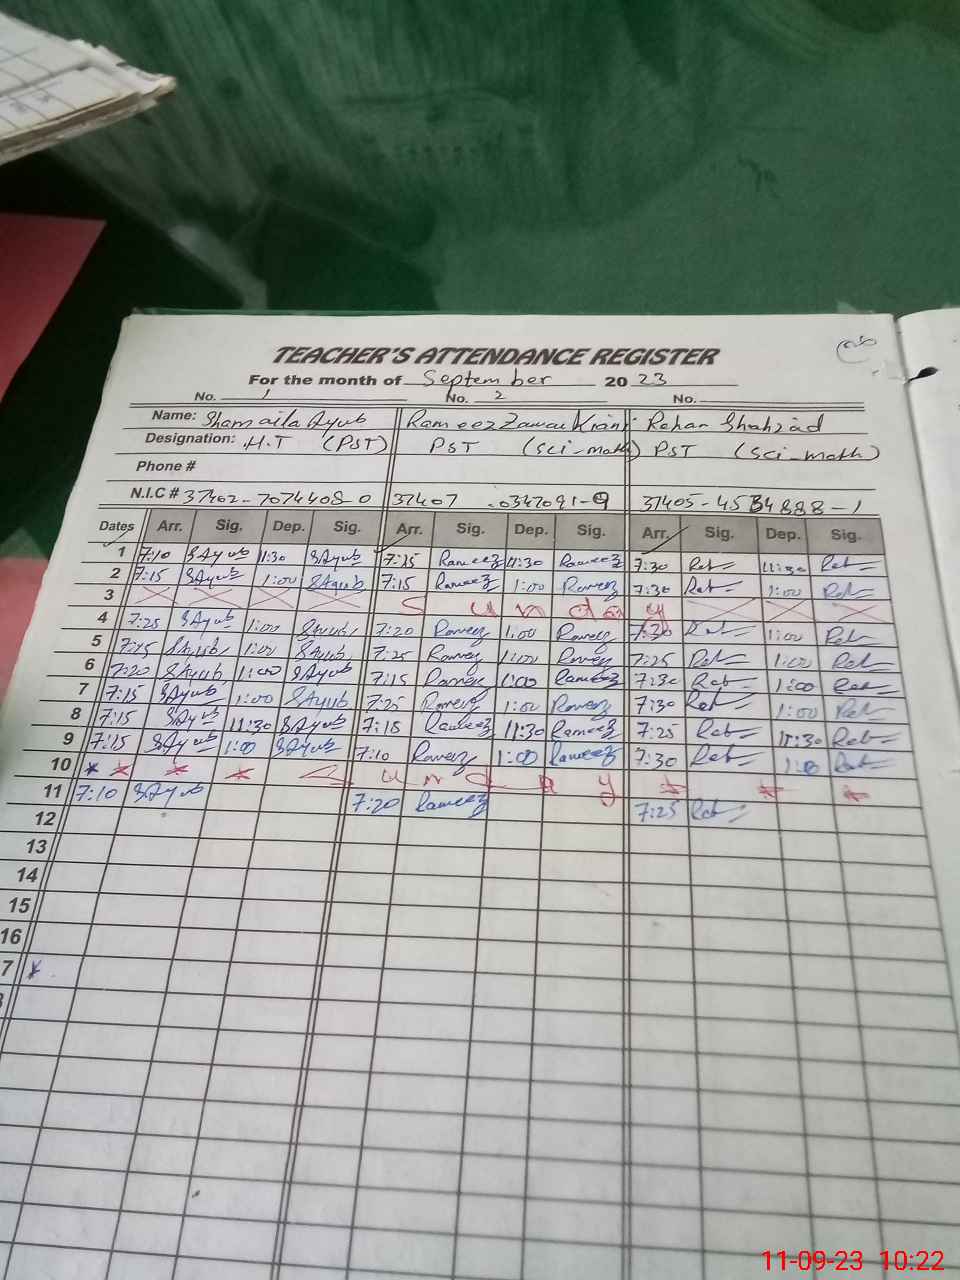 TEACHER'S ATTENDANCE REGISTER
For the month of September 20 23
No. 1 No. 2 No.
Name: Shamaila Ayub Rameez Zawar Kiani Rehan Shahzad
Designation: H.T (PST) PST (Sci-math) PST (Sci-math)
Phone #
N.I.C # 37402-7074408-0 37407 -0347091-9 37405-4534888-1
Dates Arr. Sig. Dep. Sig. Arr. Sig. Dep. Sig. Arr. Sig. Dep. Sig.
1 7:10 SAyub 11:30 SAyub 7:25 Rameez 11:30 Rameez 7:30 11:30
2 7:15 SAyub 1:00 SAyub 7:15 Rameez 1:00 Rameez 7:30 1:00
3 S u n d a y
4 7:25 SAyub 1:00 SAyub 7:20 Rameez 1:00 Rameez 7:30 1:00
5 7:15 SAyub 1:00 SAyub 7:25 Rameez 1:00 Rameez 7:25 1:00
6 7:20 SAyub 1:00 SAyub 7:15 Rameez 1:00 Rameez 7:30 1:00
7 7:15 SAyub 1:00 SAyub 7:25 Rameez 1:00 Rameez 7:30 1:00
8 7:15 SAyub 11:30 SAyub 7:18 Rameez 11:30 Rameez 7:25 11:30
9 7:15 SAyub 1:00 SAyub 7:10 Rameez 1:00 Rameez 7:30 1:00
10 S u n d a y
11 7:10 SAyub 7:20 Rameez 7:25
12
13
14
15
16
7
11-09-23 10:22